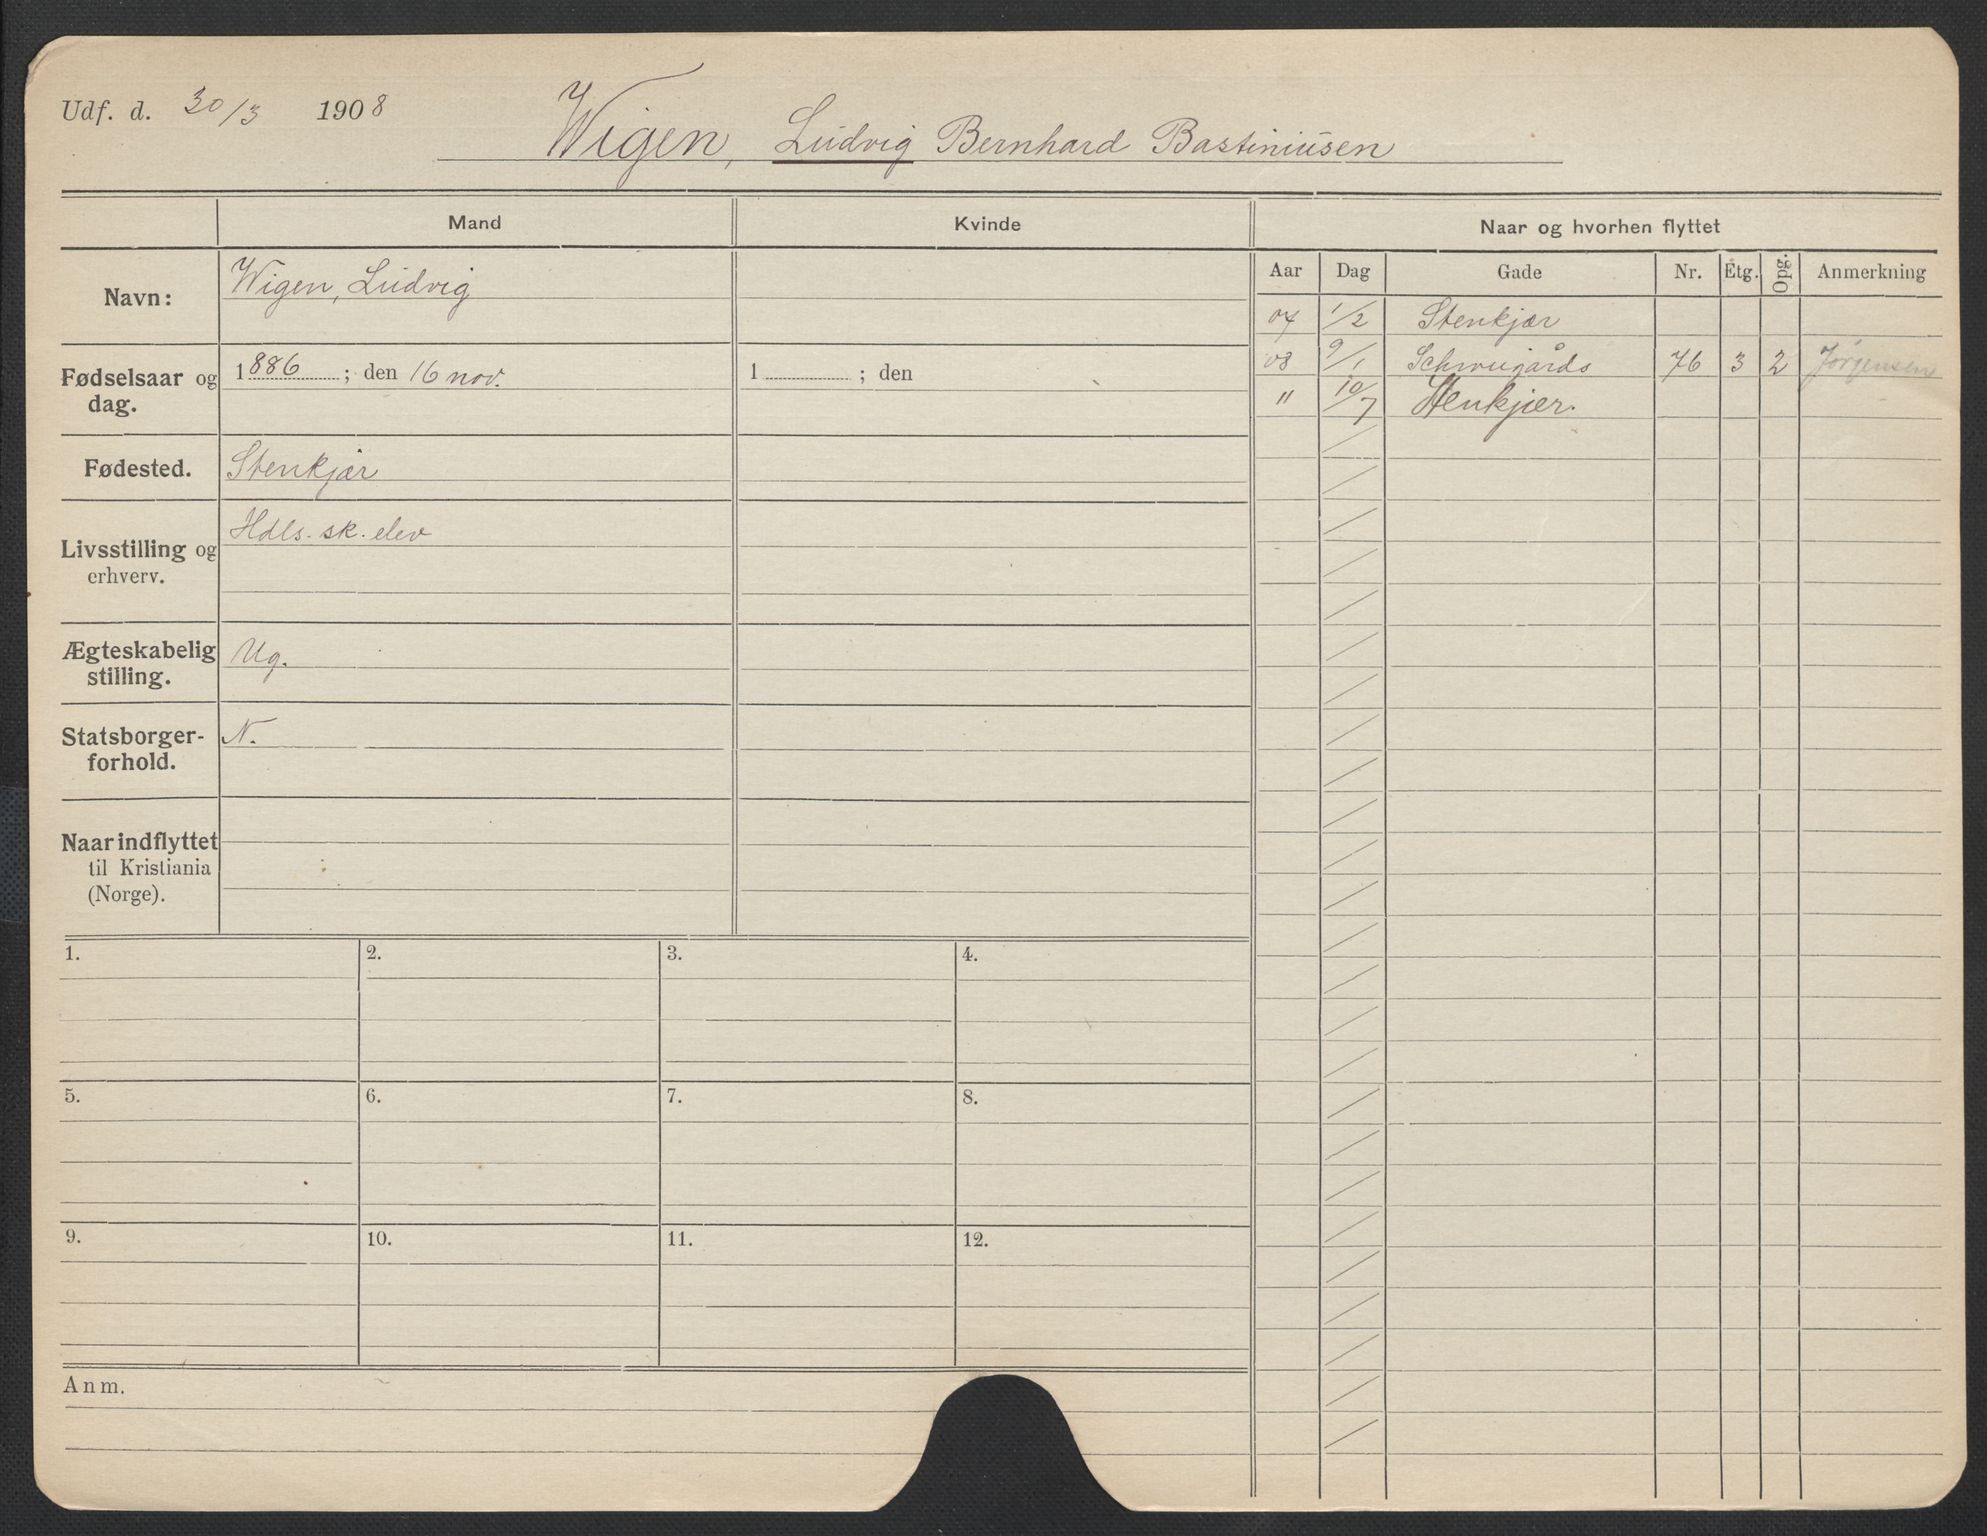 Udf. d. 30/3 1908
Wigen, Ludvig Bernhard Bastiniusen
Mand
Kvinde
Naar og hvorhen flyttet
Navn:
Wigen, Ludvig
Fødselsaar og dag.
1886; den 16 nov.
1 ; den
Fødested.
Stenkjær
Livsstilling og erhverv.
Hdls. sk. elev
Ægteskabelig stilling.
Ug.
Statsborger-
forhold.
N.
Naar indflyttet
til Kristiania
(Norge).
Aar Dag Gade Nr. Etg. Opg. Anmerkning
07 1/2 Stenkjær
08 9/1 76 3 2 Jørgensen
" 10/7 Stenkjær.
1. 2. 3. 4.
5. 6. 7. 8.
9. 10. 11. 12.
Anm.